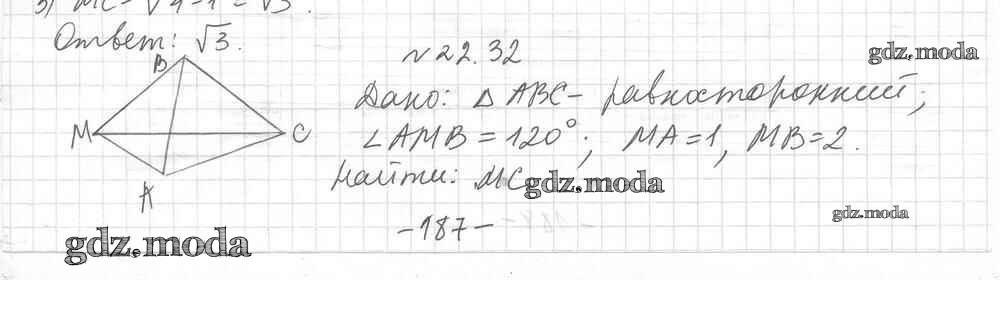 3) MC = √4-1 = √3.
Ответ: √3.
B
M
C
A
N 22.32
Дано: △ ABC - равносторонний;
∠ AMB = 120°; MA = 1, MB = 2.
Найти: MC
gdz.moda
gdz.moda
gdz.moda
-187-
gdz.moda